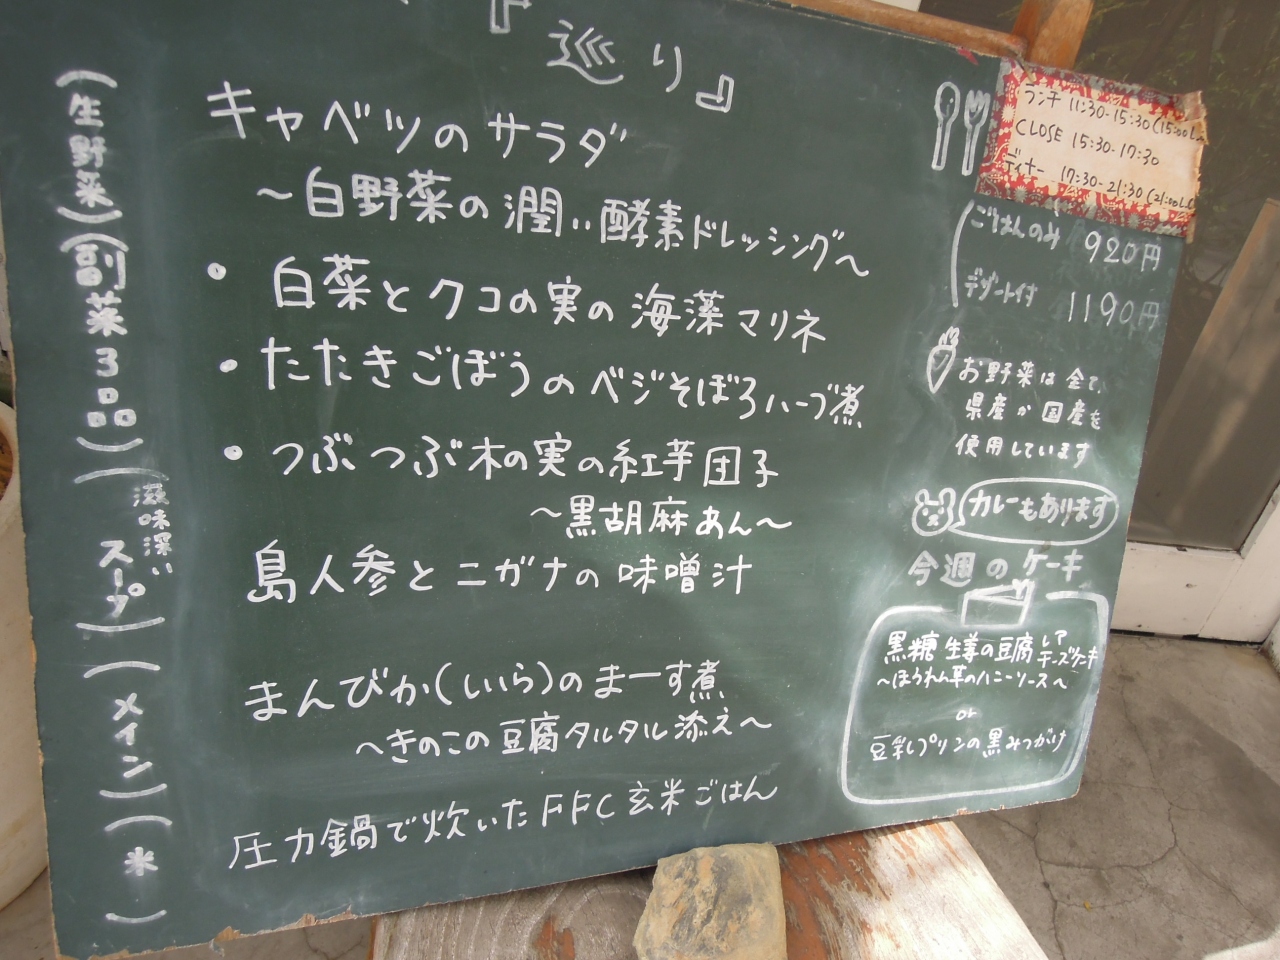 『巡り』
(生野菜)
キャベツのサラダ
~白野菜の潤い酵素ドレッシング~
(副菜3品)
・白菜とクコの実の海藻マリネ
・たたきごぼうのベジそぼろハーブ煮
・つぶつぶ木の実の紅芋団子
~黒胡麻あん~
(滋味深い
スープ)
島人参とニガナの味噌汁
(メイン)
まんびか(いら)のまーす煮
~きのこの豆腐タルタル添え~
(米)
圧力鍋で炊いたFFC玄米ごはん
ランチ 11:30-15:30(15:00L.
CLOSE 15:30-17:30
ディナー 17:30-21:30(21:00L.
ごはんのみ 920円
デザート付 1190円
お野菜は全て、
県産か国産を
使用しています
カレーもあります
今週のケーキ
黒糖生姜の豆腐レアチーズケーキ
~ほうれん草のハニーソース~
or
豆乳プリンの黒みつがけ